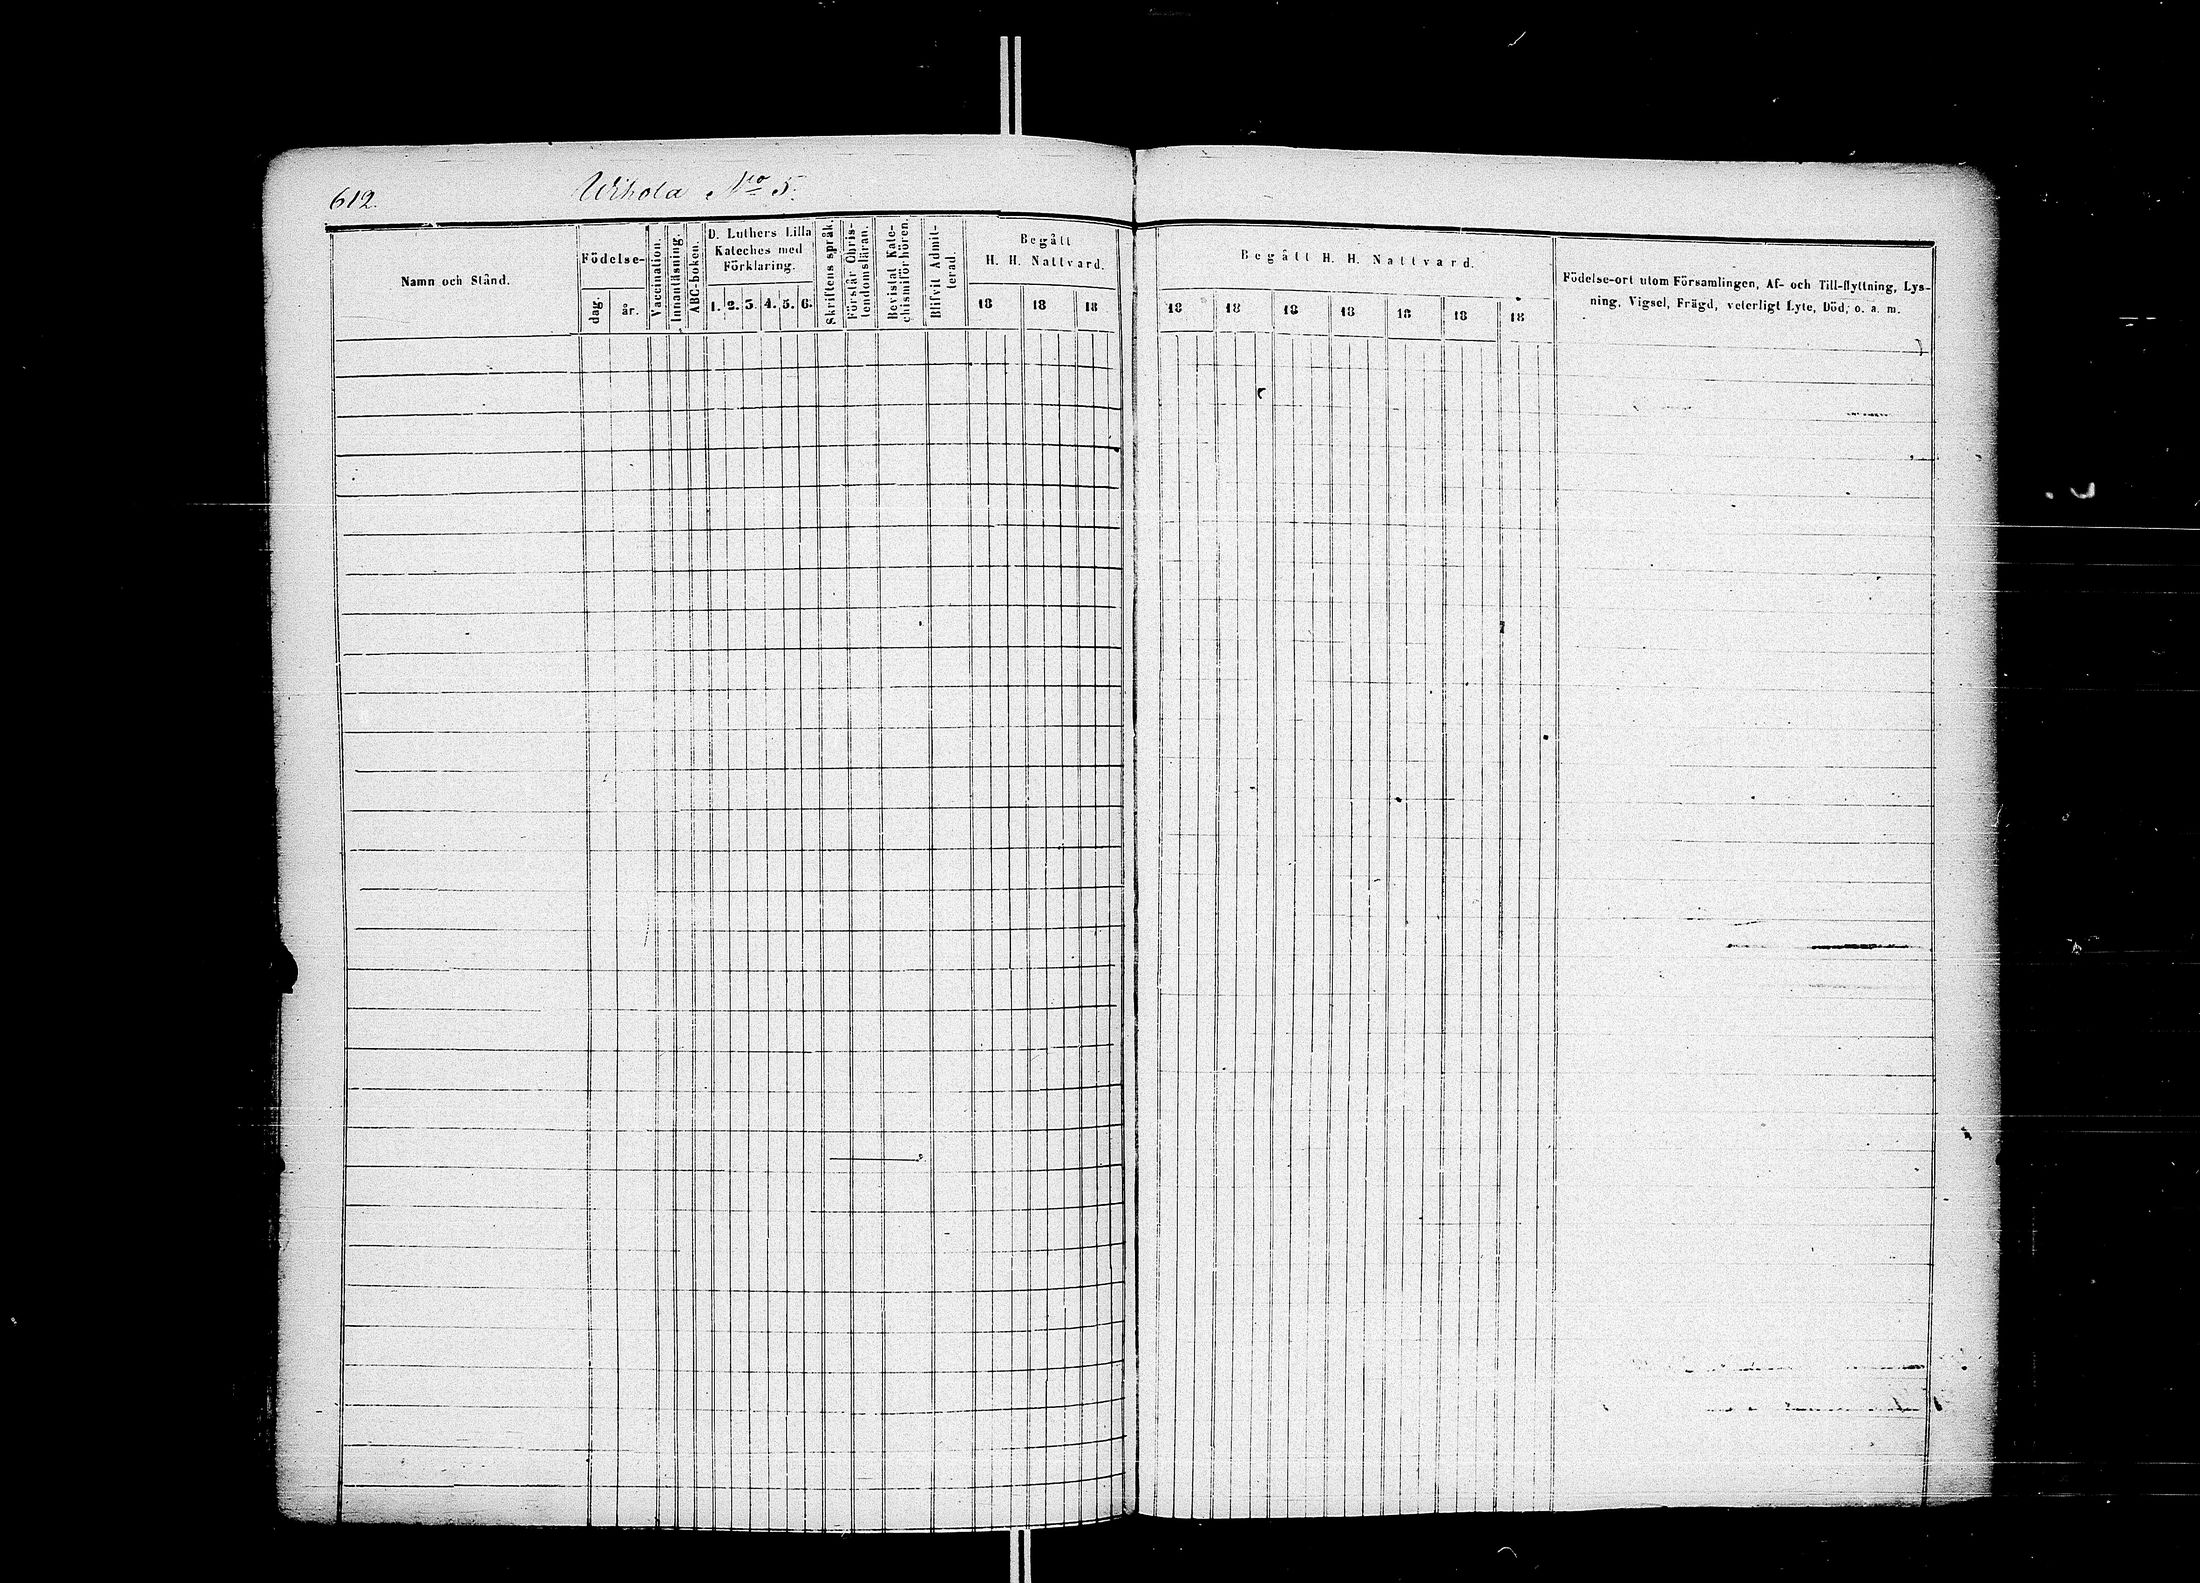 612. Wihola No 5.
Namn och Stånd.
Födelse-
dag.
år.
Vaccination.
Innantäsning.
ABC-boken.
D. Luthers Lilla
Kateches med
Förklaring.
1. 2. 3. 4. 5. 6.
Skriftens språk.
Förstår Chris-
tendomsläran.
Bevistat Kate-
chismiförhören.
Blifvit Admit-
terad.
Begått
H. H. Nattvard.
18 18 18
Begått H. H. Nattvard.
18 18 18 18 18 18 18
Födelse-ort utom Församlingen, Af- och Till-flyttning, Lys-
ning, Vigsel, Frägd, veterligt Lyte, Död, o. a. m.